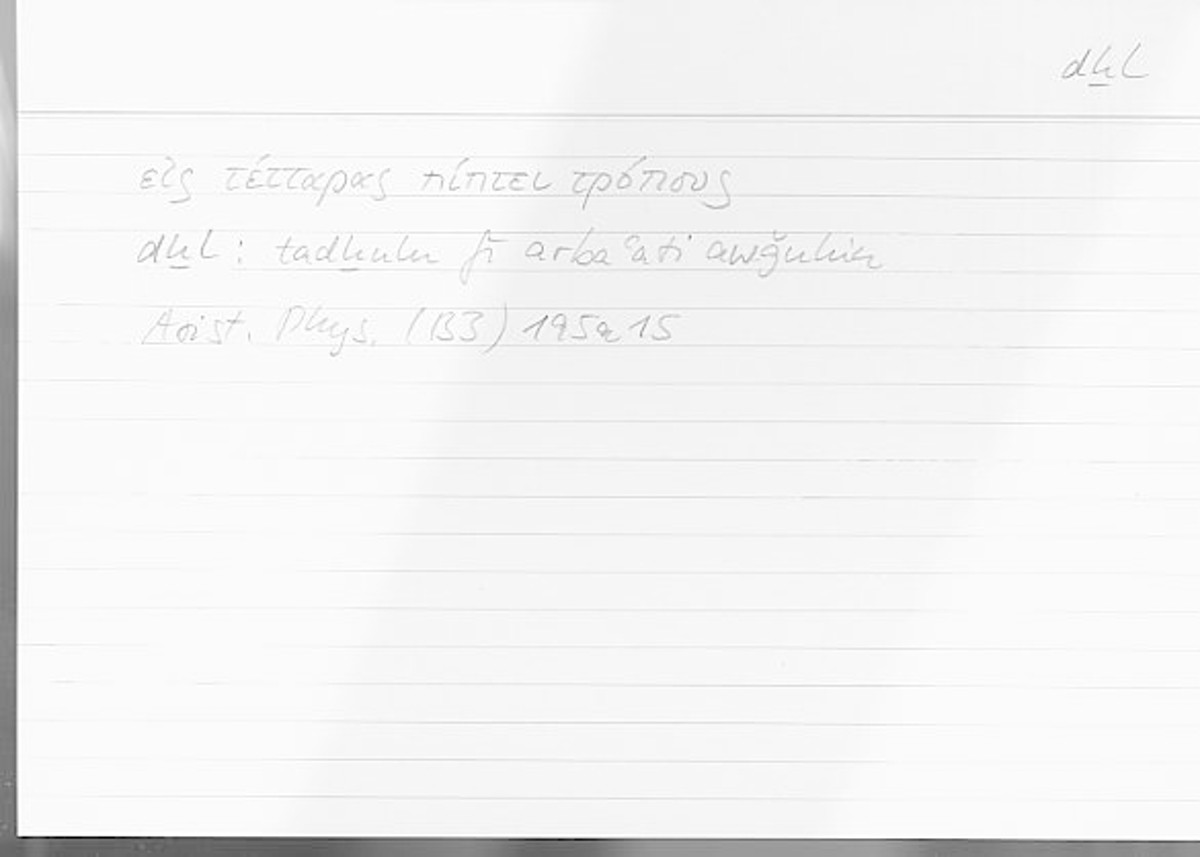 dḫl
εἰς τέτταρας πίπτει τρόπους
dḫl: tadḫulu fī arbaʿati awǧuhin
Arist. Phys. (B3) 195a15